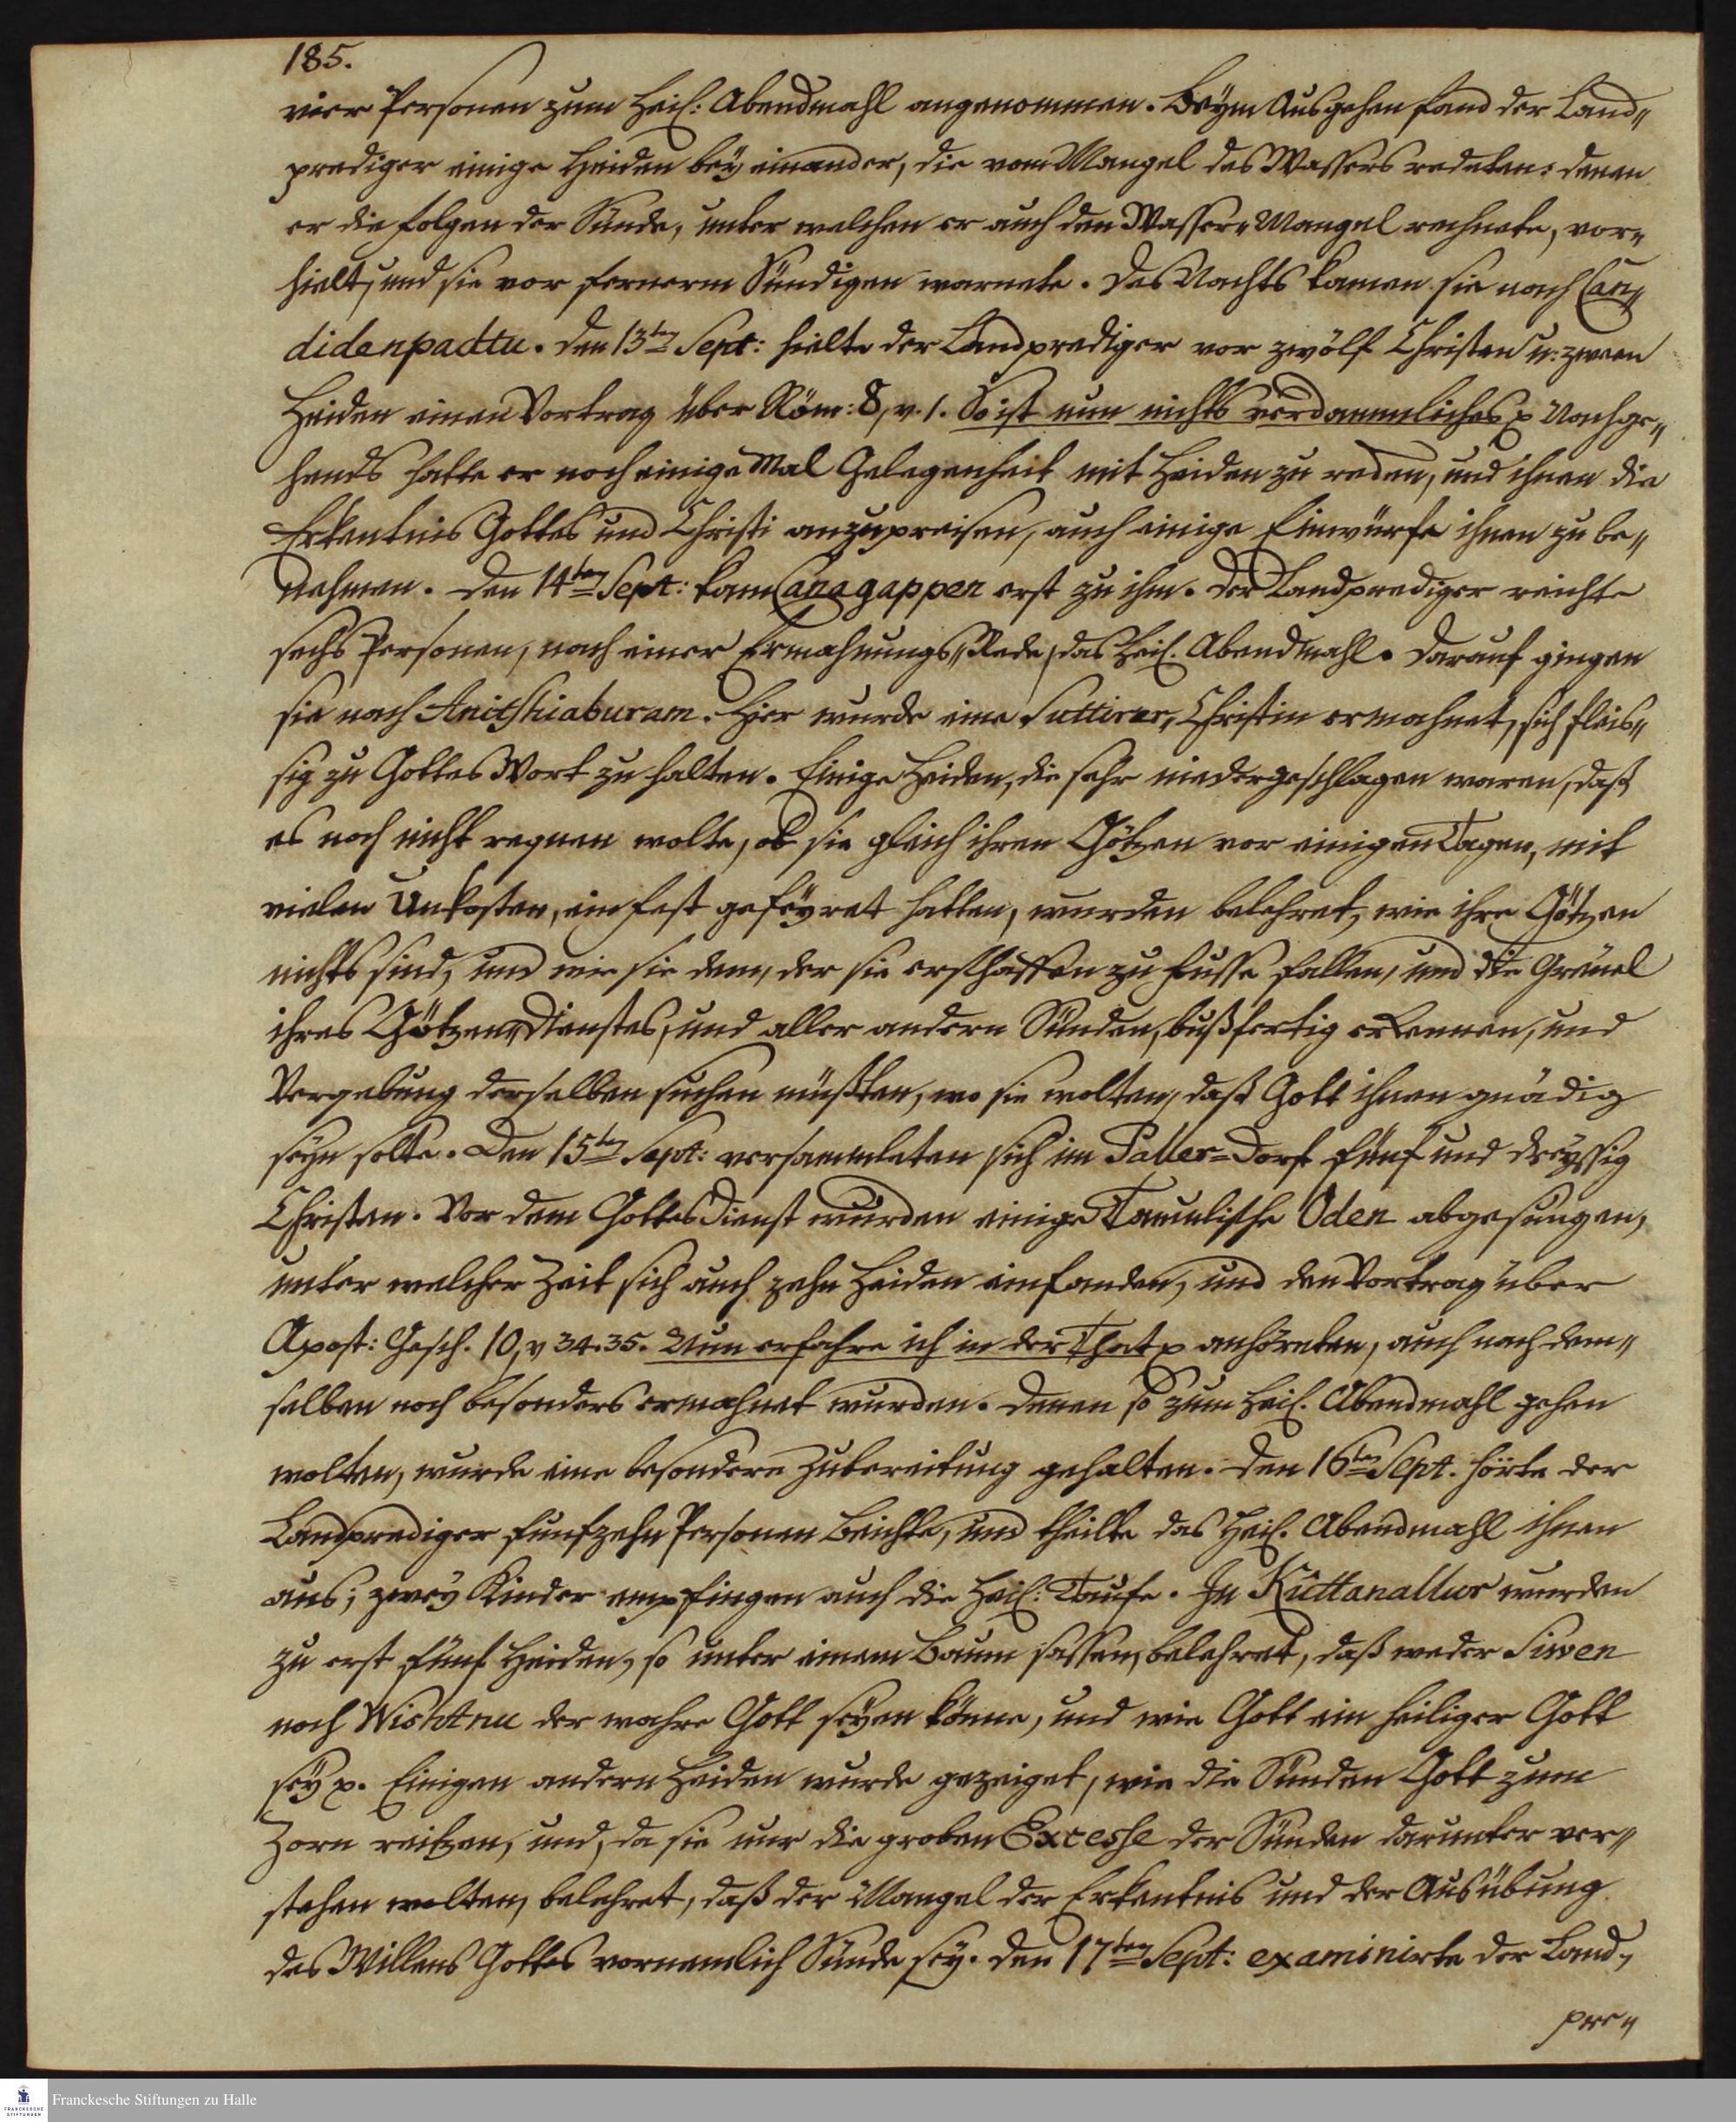 185.
vier Personen zum Heil: Abendmahl angenommen. Beym Ausgehen fand der Land„
prediger einige Heiden bey einander, die vom Mangel des Wassers redeten: denen
er die Folgen der Sünde, unter welchen er auch den Wasser„Mangel rechnete, vor„
hielt, und sie vor fernerm Sündigen warnete. Des Nachts kamen sie nach Can„
didenpadtu. Den 13ten Sept: hielte der Landprediger vor zwölf Christen u: zween
Heiden einen Vortrag über Röm: 8, v. 1. So ist nun nichts verdammliches p Nachge„
hends hatte er noch einige Mal Gelegenheit mit Heiden zu reden, und ihnen die
Erkentnis Gottes und Christi anzupreisen, auch einige Einwürfe ihnen zu be„
nehmen. Den 14ten Sept: kam Canagappen erst zu ihm. Der Landprediger reichte
sechs Personen, nach einer Ermahnungs„Rede, das Heil. Abendmahl. Darauf gingen
sie nach Anitshiaburam. Hier wurde eine Suttirer„Christin ermahnet, sich fleis„
sig zu Gottes Wort zu halten. Einige Heiden, die sehr niedergeschlagen waren, daß
es noch nicht regnen wolte, ob sie gleich ihren Götzen vor einigen Tagen, mit
vielen Unkosten, ein Fest gefeyret hatten, wurden belehret, wie ihre Götzen
nichts sind, und wie sie dem, der sie erschaffen zu Fusse fallen, und die Greuel
ihres Götzen„Dienstes, und aller andern Sünden, bußfertig erkennen, und
Vergebung derselben suchen müßten, wo sie wolten, daß Gott ihnen gnädig
seyn solte. Den 15ten Sept: versammleten sich im Paller=Dorf fünf und dreyssig
Christen. Vor dem Gottesdienst wurden einige Tamulische Oden abgesungen,
unter welcher Zeit sich auch zehn Heiden einfanden, und den Vortrag über
Apost: Gesch. 10, v 34. 35. Nun erfahre ich in der That p anhöreten, auch nach dem„
selben noch besonders ermahnet wurden. Denen so zum Heil. Abendmahl gehen
wolten, wurde eine besondere Zubereitung gehalten. Den 16ten Sept. hörte der
Landprediger funfzehn Personen Beichte, und theilte das Heil. Abendmahl ihnen
aus; zwey Kinder empfingen auch die Heil: Taufe. In Kúttanallur wurden
zu erst fünf Heiden, so unter einem Baum sassen, belehret, daß weder Siwen
noch Wishtnu der wahre Gott seyen könne, und wie Gott ein heiliger Gott
sey p. Einigen andern Heiden wurde gezeiget, wie die Sünden Gott zum
Zorn reitzen, und, da sie nur die groben Excesse der Sünden darunter ver„
stehen wolten, belehret, daß der Mangel der Erkentnis und der Ausübung
des Willens Gottes vornemlich Sünde sey. Den 17ten Sept: examinirte der Land„
pre„
FRANCKESCHE STIFTUNGEN
Franckesche Stiftungen zu Halle